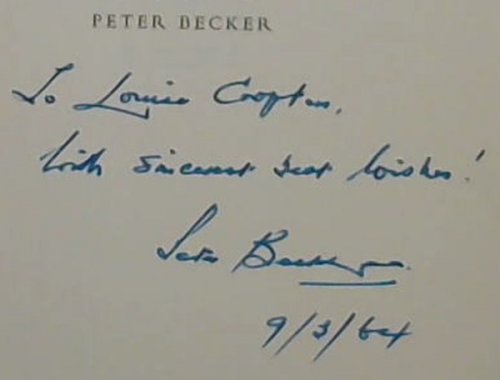 PETER BECKER
To Louise
With sincerest best wishes!
Peter Becker.
9/3/64